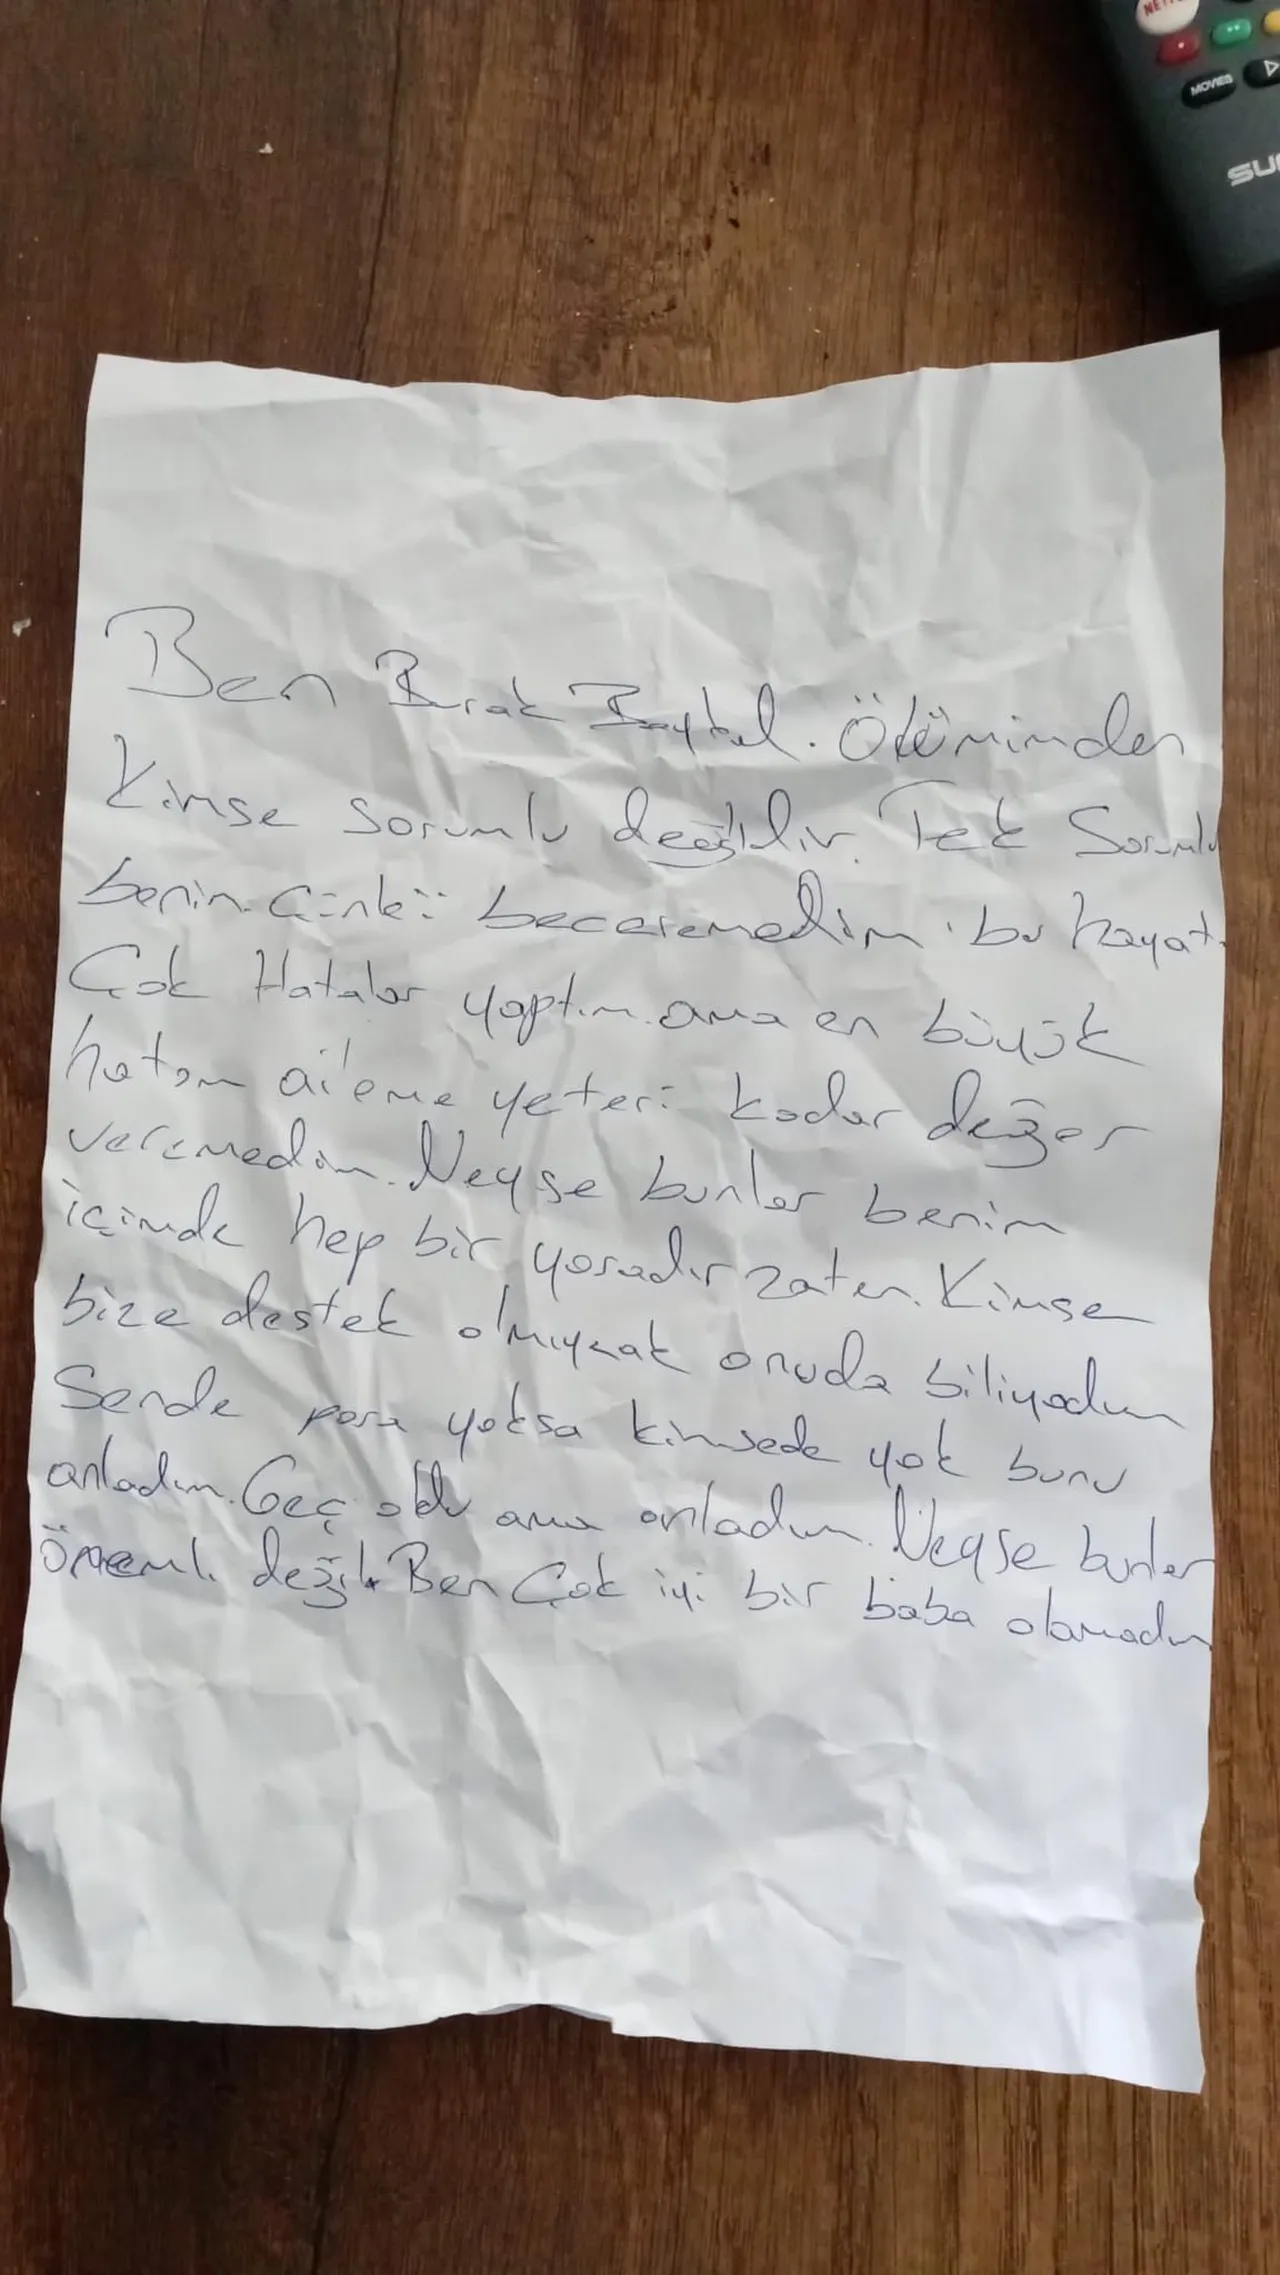 MOVIES
Ben Burak Ölümümden
Kimse sorumlu değildir. Tek Sorumlu
benim. Çünkü beceremedim bu hayatı
Çok Hatalar yaptım. ama en büyük
hatam aileme yeteri kadar değer
veremedim. Neyse bunlar benim
içimde hep bir yaradır zaten. Kimse
bize destek olmıycak onuda biliyodum
Sende para yoksa kimsede yok bunu
anladım. Geç oldu ama anladım. Neyse bunlar
önemli değil. Ben Çok iyi bir baba olamadım